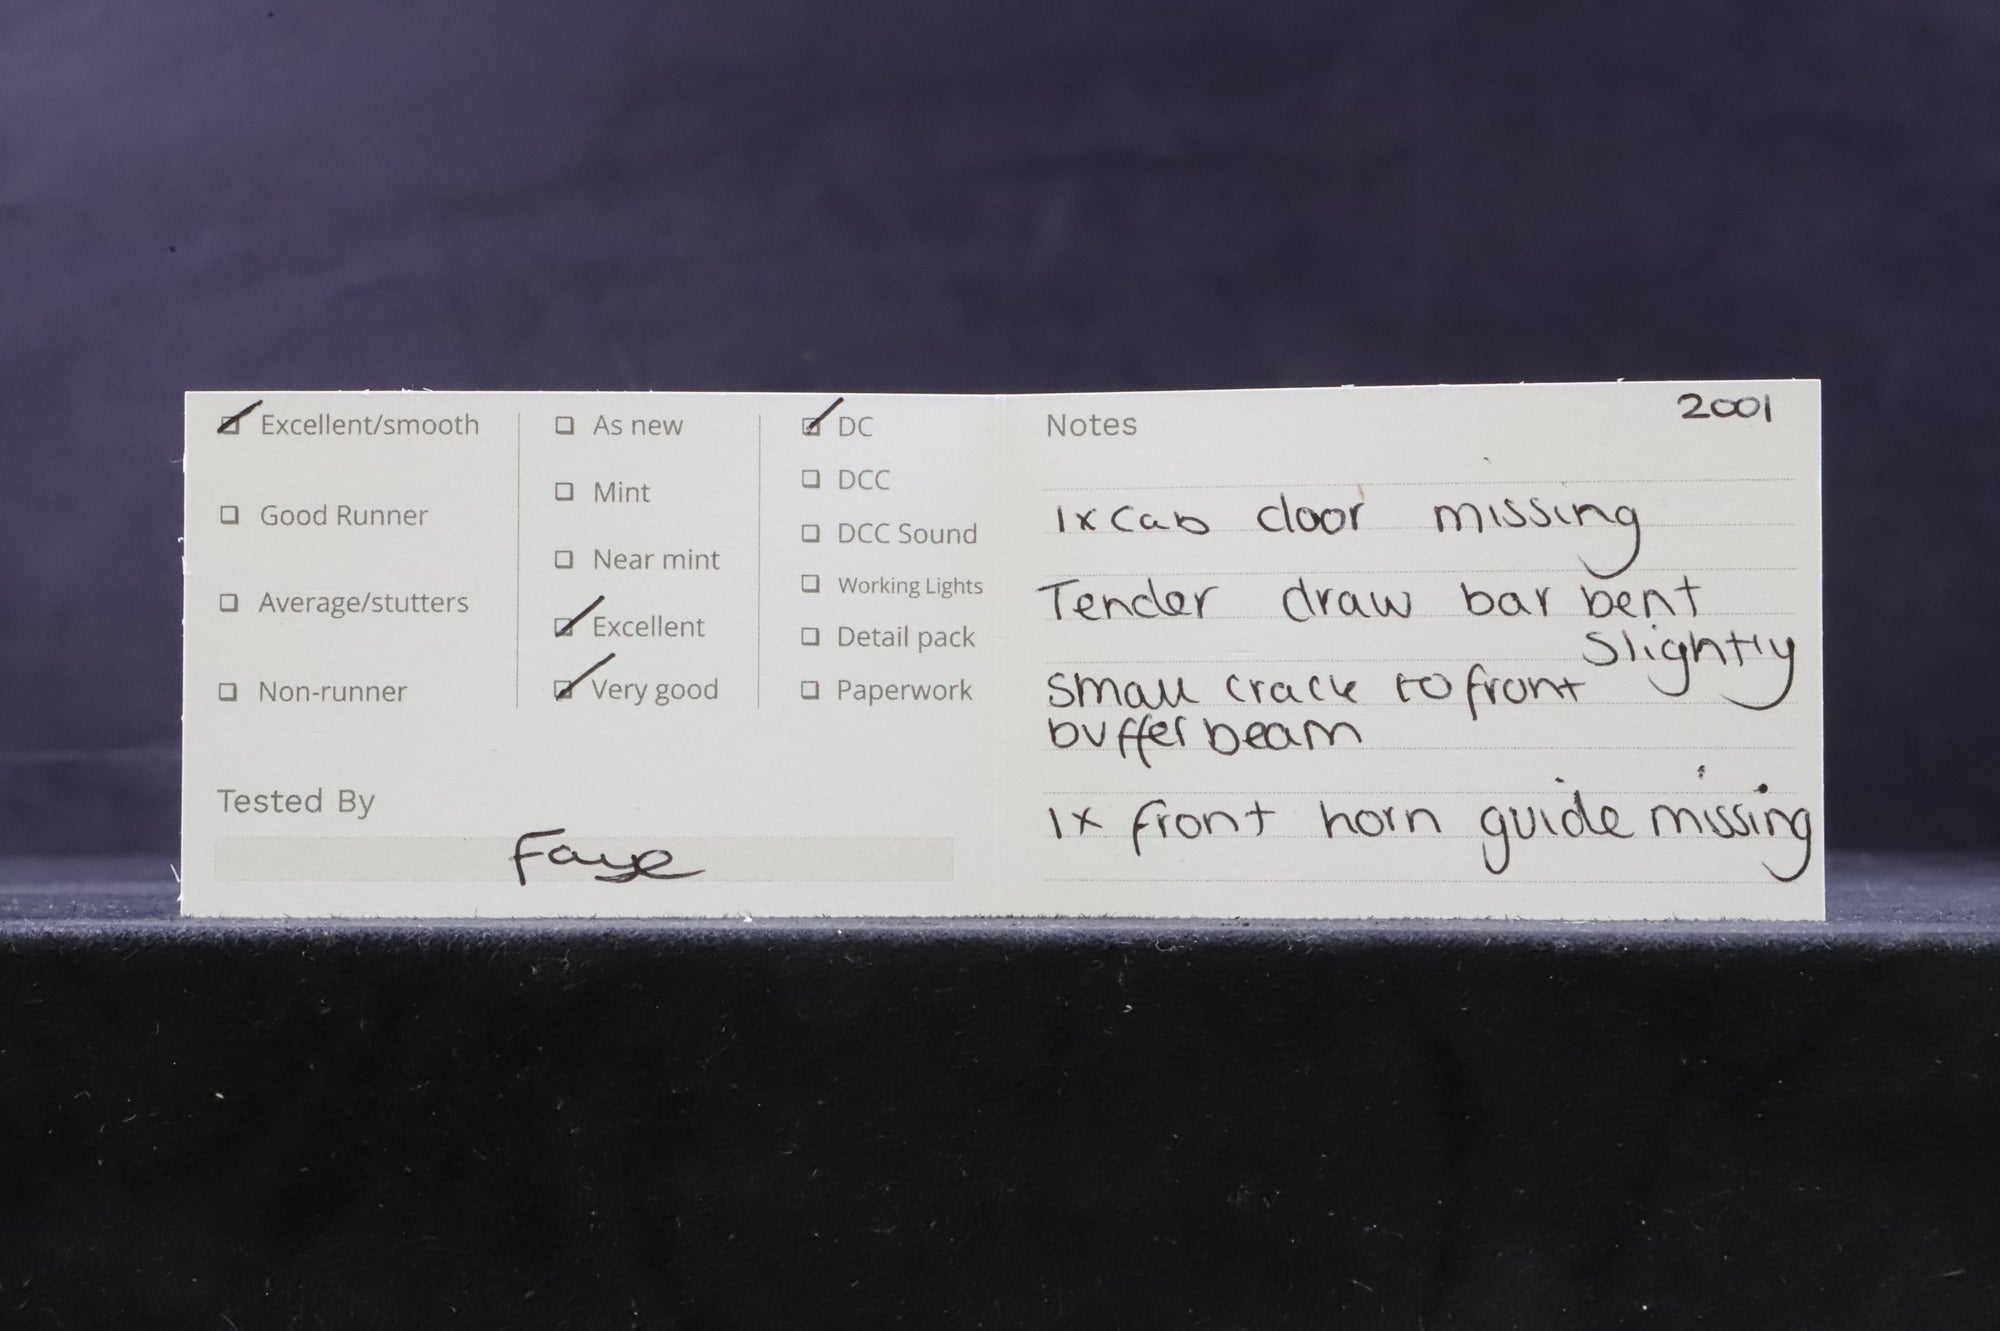 Excellent/smooth
Good Runner
Average/stutters
Non-runner
As new
Mint
Near mint
Excellent
Very good
DC
DCC
DCC Sound
Working Lights
Detail pack
Paperwork
Tested By
Faye
Notes
2001
1x Cab door missing
Tender draw bar bent
slightly
small crack to front
buffer beam
1x front horn guide missing